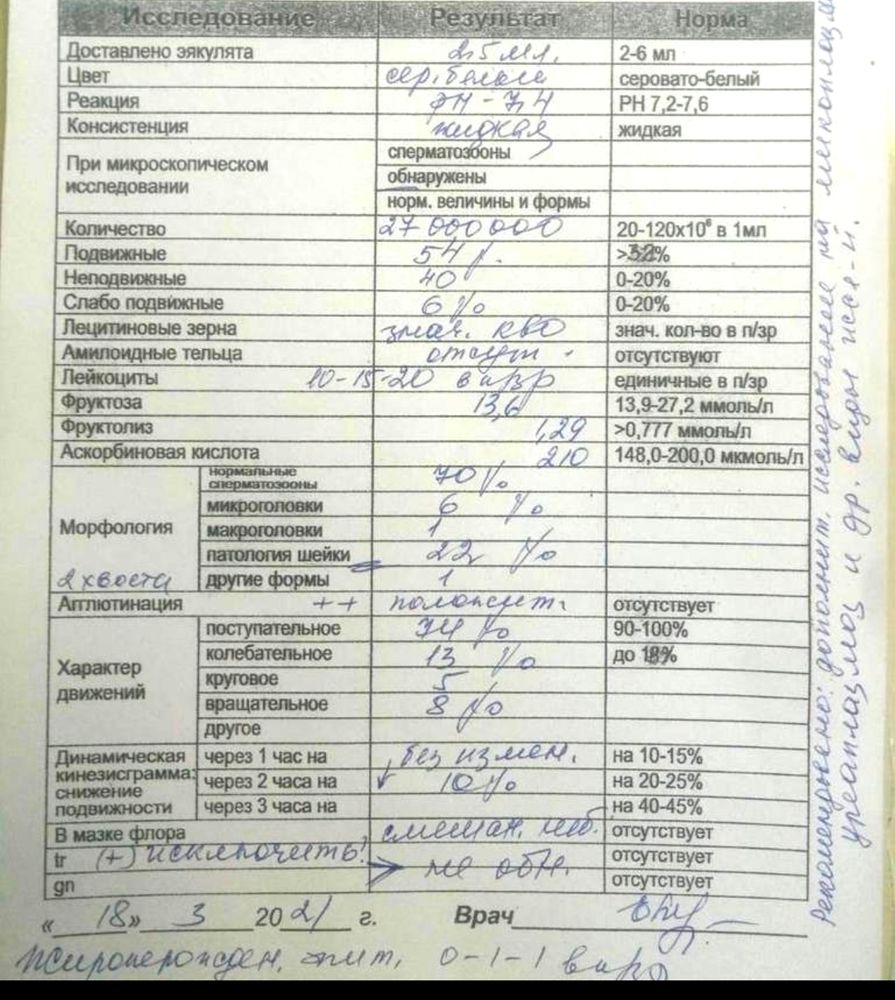 Исследование Результат Норма
Доставлено эякулята 2,5 мл. 2-6 мл
Цвет сер. белый серовато-белый
Реакция рН - 7,4 РН 7,2-7,6
Консистенция жидкая жидкая
При микроскопическом исследовании сперматозооны
обнаружены
норм. величины и формы
Количество 27 000 000 20-120х10⁶ в 1мл
Подвижные 54 % >32%
Неподвижные 40 0-20%
Слабо подвижные 6 % 0-20%
Лецитиновые зерна знач. кво знач. кол-во в п/зр
Амилоидные тельца отсут. отсутствуют
Лейкоциты 10-15-20 в п/зр единичные в п/зр
Фруктоза 13,6 13,9-27,2 ммоль/л
Фруктолиз 1,29 >0,777 ммоль/л
Аскорбиновая кислота 210 148,0-200,0 мкмоль/л
Морфология нормальные сперматозооны 70 %
микроголовки 6 %
макроголовки 1
патология шейки 22 %
2 хвоста другие формы 1
Агглютинация ++ положит. отсутствует
Характер движений поступательное 74 % 90-100%
колебательное 13 % до
круговое 5
вращательное 8 %
другое
Динамическая кинезисграмма: снижение подвижности через 1 час на без измен. на 10-15%
через 2 часа на ↓ 10 % на 20-25%
через 3 часа на на 40-45%
В мазке флора смешан. неб. отсутствует
tr (+) исключить! не обн. отсутствует
gn отсутствует
« 18» 3 2021 г. Врач
Жироперожден. эпит. 0-1-1 в п/з
Рекомендовано: дополнит. исследование на микоплазм
уреаплазмоз и др. виды иссл-й.